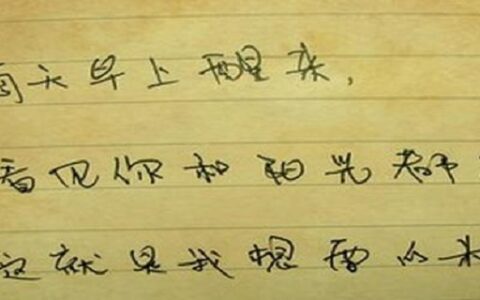 每天早上醒来,
看见你和阳光都
这就是我想要的